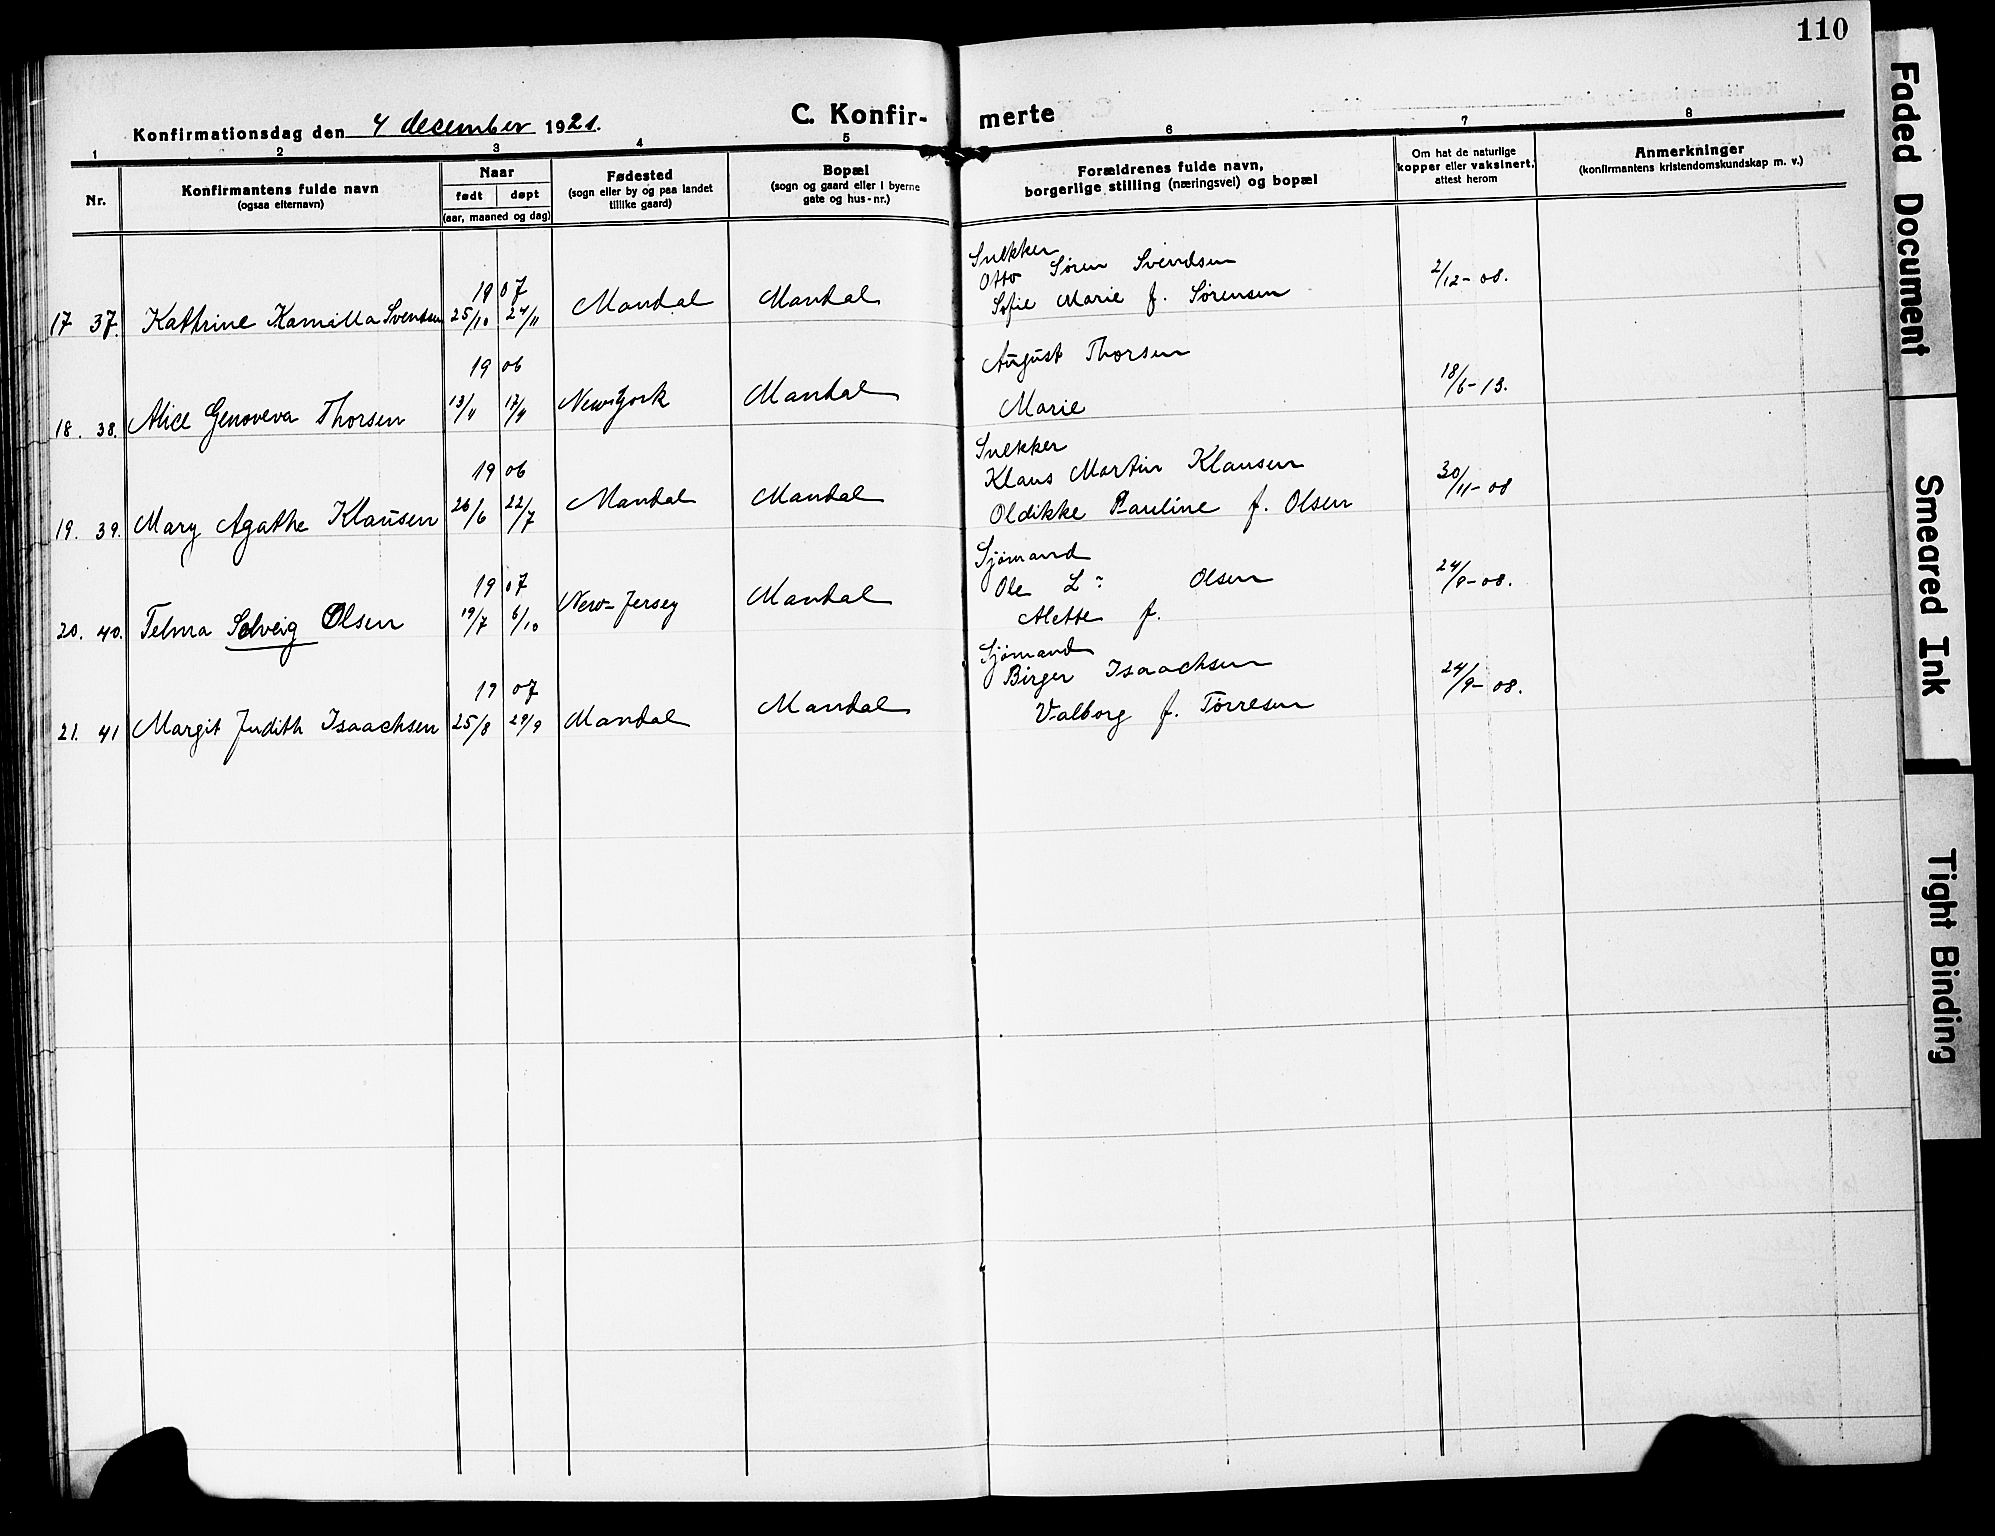 110
Konfirmationsdag den 4 december 1921.
C. Konfir- merte
1 2 3 4 5 6 7 8
Nr.
Konfirmantens fulde navn
(ogsaa efternavn)
Naar
født døpt
(aar, maaned og dag)
Fødested
(sogn eller by og paa landet
tillike gaard)
Bopæl
(sogn og gaard eller i byerne
gate og hus-nr.)
Forældrenes fulde navn,
borgerlige stilling (næringsvei) og bopæl
Om hat de naturlige
kopper eller vaksinert,
attest herom
Anmerkninger
(konfirmantens kristendomskundskap m. v.)
Snekker
Otto Søren Svendsen
19 07
17 37. Kathrine Kamilla Svendsen 25/10 24/11 Mandal Mandal Sofie Marie f. Sørensen 2/12-08.
19 06
August Thorsen
18. 38. Alice Genoveva Thorsen 13/11 17/4 New York Mandal Marie 18/6-13.
Snekker
19 06
Klaus Martin Klausen
19. 39. Mary Agathe Klausen 26/6 22/7 Mandal Mandal Oldikke Pauline f. Olsen 30/11-08
Sjømand
19 07
Ole L: Olsen
20. 40. Telma Solveig Olsen 19/7 6/10 New-Jersey Mandal Alette f. 24/9-08.
Sjømand
19 07
Birger Isaachsen
21. 41 Margit Judith Isaachsen 25/8 29/9 Mandal Mandal Valborg f. Tørresen 24/9-08.
Faded Document
Smeared Ink
Tight Binding